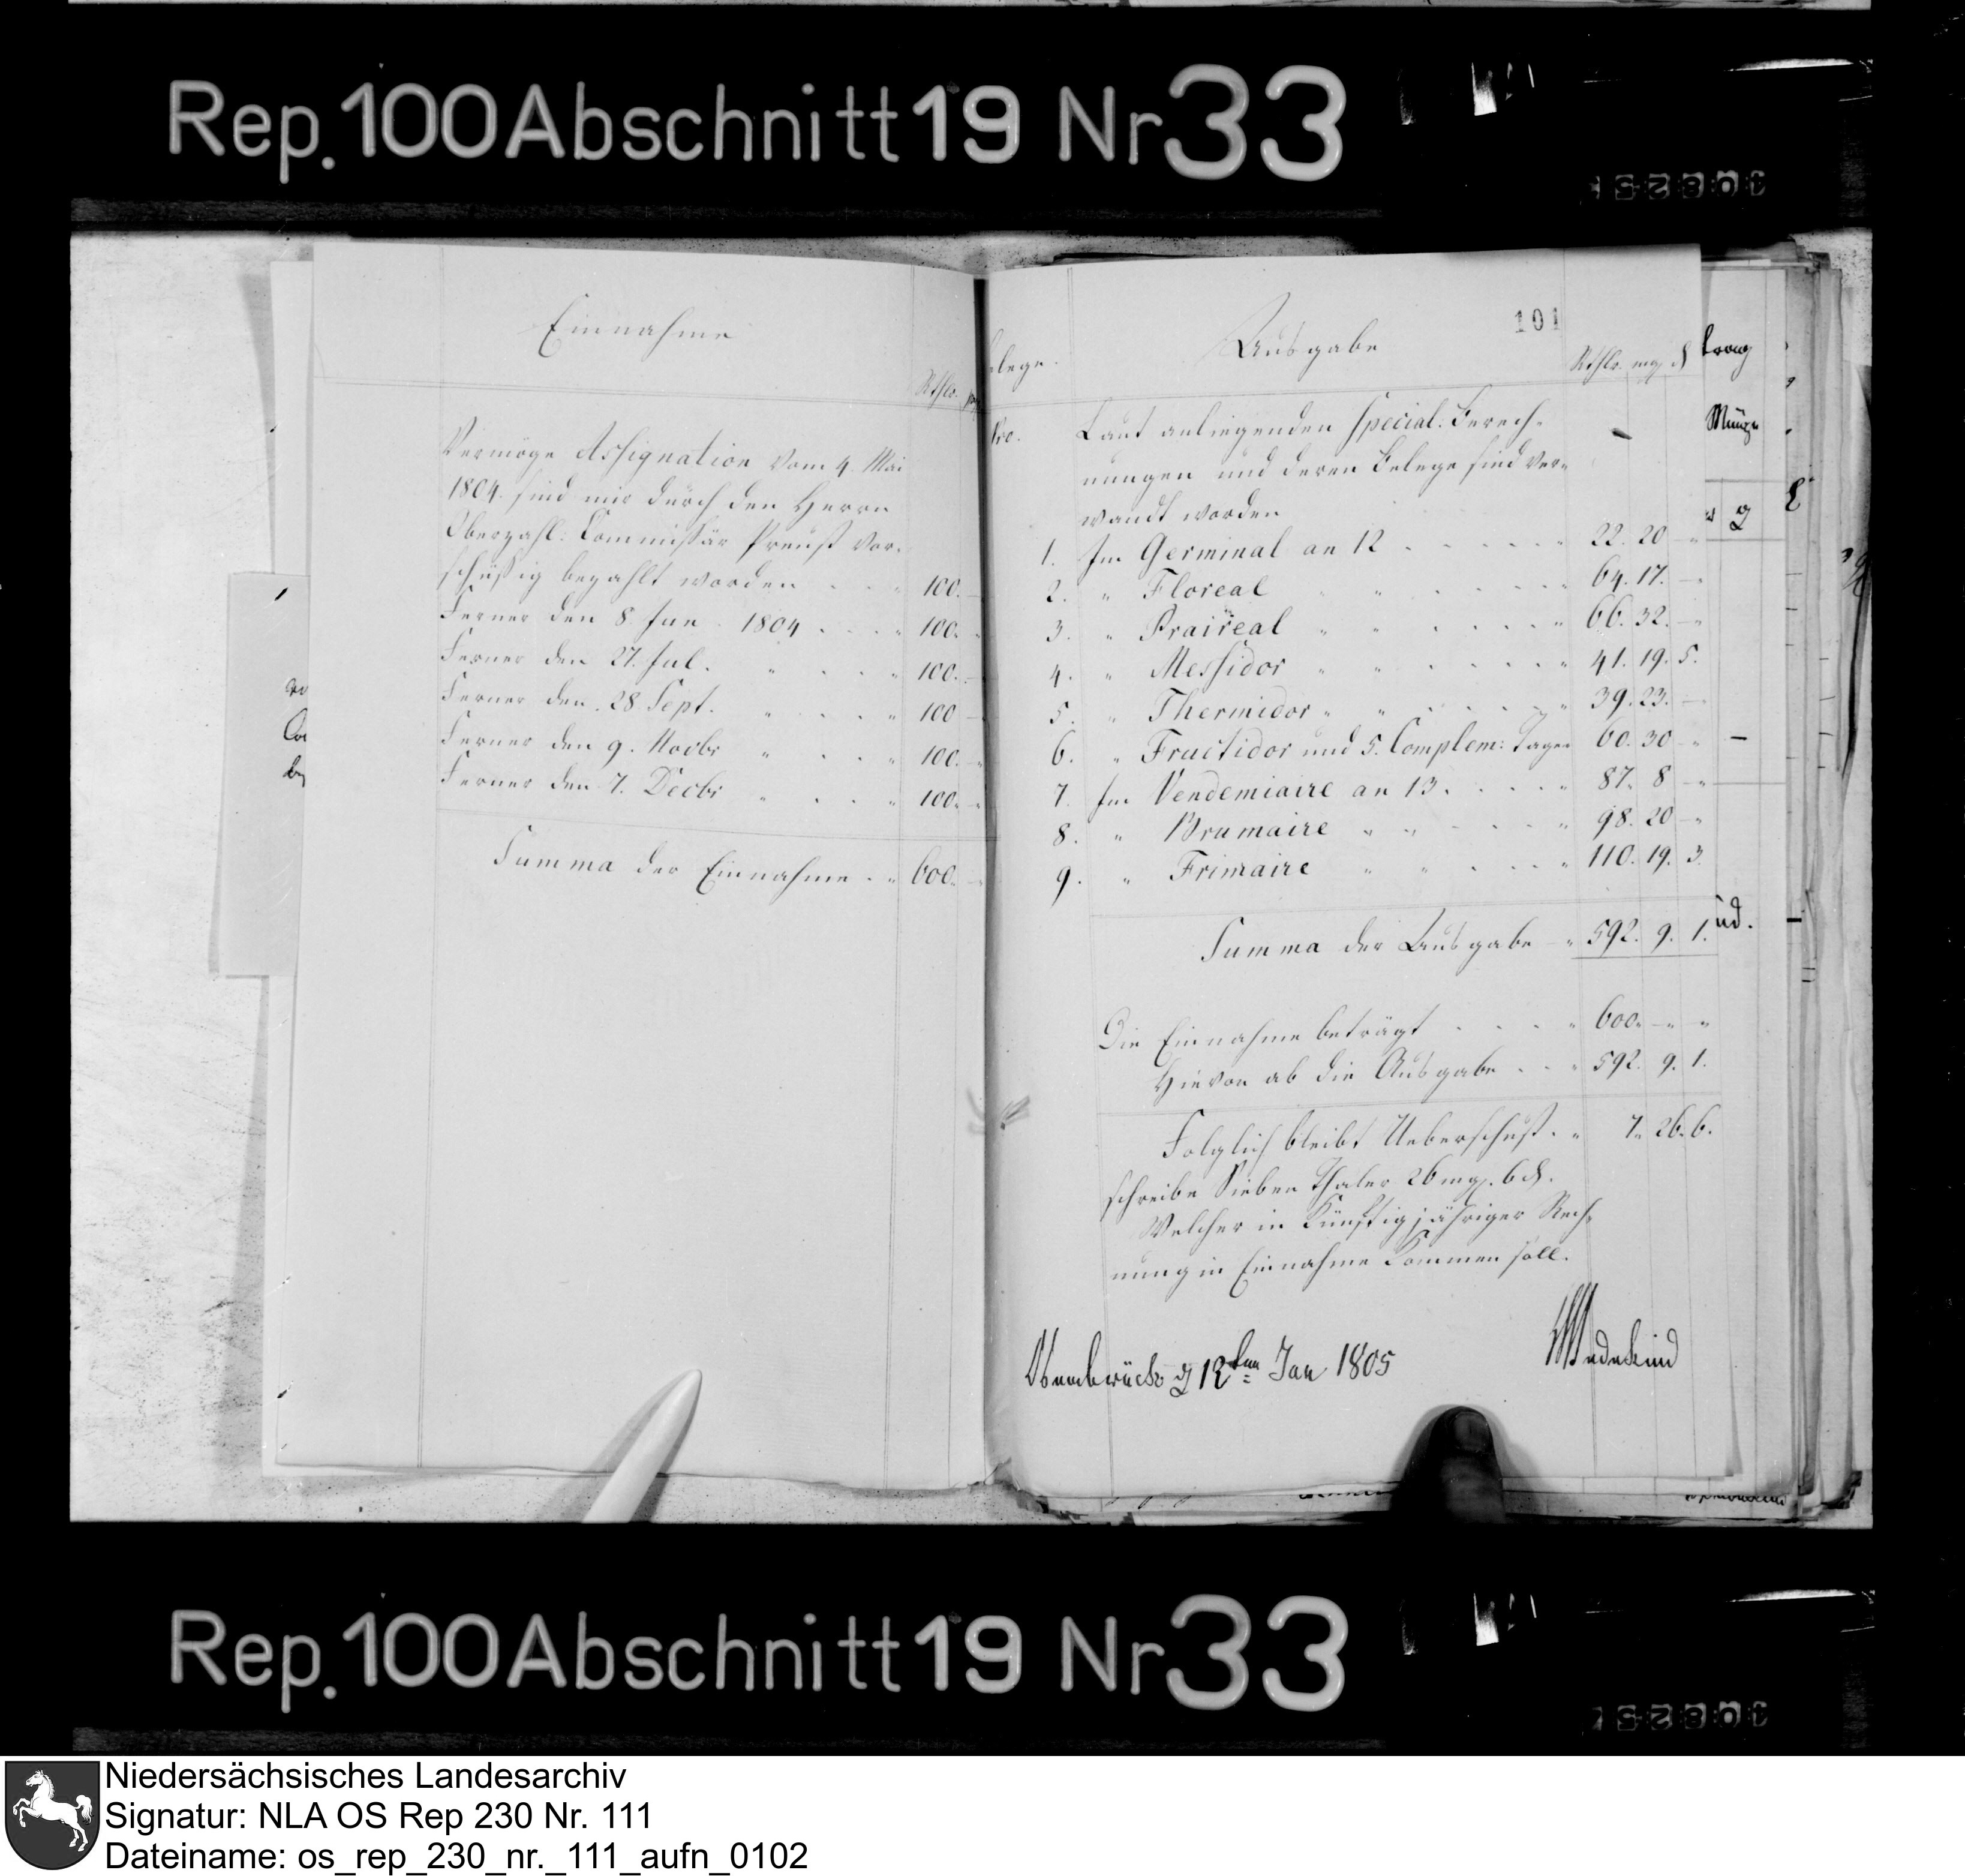 Rep.100 Abschnitt 19 Nr 33
Einnahme
Rthlr.
Vermöge Assignation vom 4. Mai
1804. sind mir durch den Herrn
Oberzahl: Commissär Preuß vor-
schüßig bezahlt worden . . . „ 100.
Ferner den 8. Jun. 1804 . . . „ 100.
Ferner den 27. Jul. „ . . . „ 100.
Ferner den 28 Sept. „ . . . „ 100
Ferner den 9. Novbr „ . . . „ 100.
Ferner den 7. Decbr „ . . . „ 100.
Summa der Einnahme . „ 600.
101
Ausgabe
elege.
Rthlr. mg. ₰
Nro.
Laut anliegenden Special. Berech-
nungen und deren Belege sind ver-
wandt worden
1. Im Germinal an 12 . . . . . „ 22. 20 - „
2. „ Floreal „ „ . . . . „ 64. 17. - „
3. „ Praireal „ „ . . . . „ 66. 32. - „
4. „ Messidor „ „ . . . . „ 41. 19. 5.
5. „ Thermidor „ „ . . . . „ 39. 23. -
6. „ Fructidor und 5. Complem: Tagen 60. 30 - „
7. Im Vendemiaire an 13. . . . . „ 87. 8 - „
8. „ Brumaire „ „ . . . „ 98. 20 - „
9. „ Frimaire „ „ . . . „ 110. 19. 3.
Summa der Ausgabe - „ 592. 9. 1.
Die Einnahme beträgt . . . . „ 600. - „ „
Hievon ab die Ausgabe . . „ 592. 9. 1.
Folglich bleibt Ueberschuß. „ 7. 26. 6.
schreibe Sieben Thaler 26 mg. 6 ₰.
Welcher in künftigjähriger Rech-
nung in Einnahme kommen soll.
Osnabrück d 12ten Jan 1805
Wedekind
Münze
Rep.100 Abschnitt 19 Nr 33
Niedersächsisches Landesarchiv
Signatur: NLA OS Rep 230 Nr. 111
Dateiname: os_rep_230_nr._111_aufn_0102